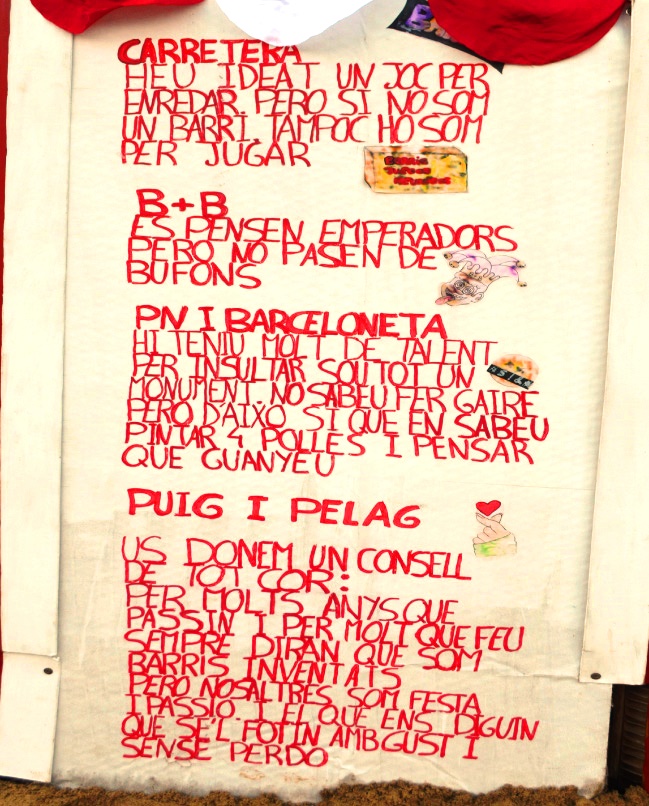 CARRETERA
HEU IDEAT UN JOC PER
ENREDAR. PERO SI NO SOM
UN BARRI, TAMPOC HO SOM
PER JUGAR
B+B
ES PENSEN EMPERADORS
PERO NO PASEN DE
BUFONS
PN I BARCELONETA
HI TENIU MOLT DE TALENT
PER INSULTAR SOU TOT UN
MONUMENT. NO SABEU FER GAIRE
PERO D'AIXÒ SI QUE EN SABEU
PINTAR 4 POLLES I PENSAR
QUE GUANYEU
PUIG I PELAG
US DONEM UN CONSELL
DE TOT COR:
PER MOLTS ANYS QUE
PASSIN I PER MOLT QUE FEU
SEMPRE DIRAN QUE SOM
BARRIS INVENTATS
PERO NOSALTRES SOM FESTA
I PASSIO I EL QUE ENS DIGUIN
QUE SE'L FOTIN AMB GUST I
SENSE PERDO